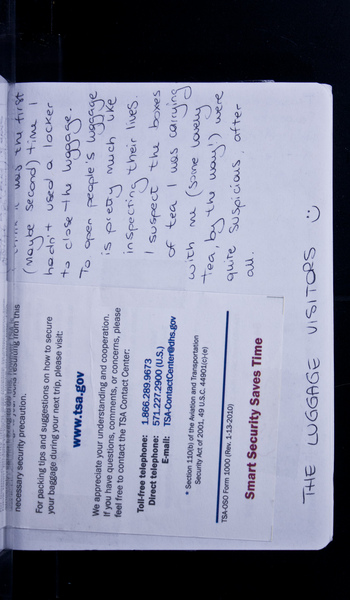 necessary security precaution.
For packing tips and suggestions on how to secure
your baggage during your next trip, please visit:
www.tsa.gov
We appreciate your understanding and cooperation.
If you have questions, comments, or concerns, please
feel free to contact the TSA Contact Center:
Toll-free telephone: 1.866.289.9673
Direct telephone: 571.227.2900 (U.S.)
E-mail: TSA-ContactCenter@dhs.gov
* Section 110(b) of the Aviation and Transportation
Security Act of 2001, 49 U.S.C. 44901(c)-(e)
TSA-OSO Form 1000 (Rev. 1-13-2010)
Smart Security Saves Time
it was the first
(maybe second) time I
hadn't used a locker
to close the luggage.
To open people's luggage
is pretty much like
inspecting their lives.
I suspect the boxes
of tea I was carrying
with me (some lovely
tea, by the way!) were
quite suspicious, after
all.
THE LUGGAGE VISITORS :)